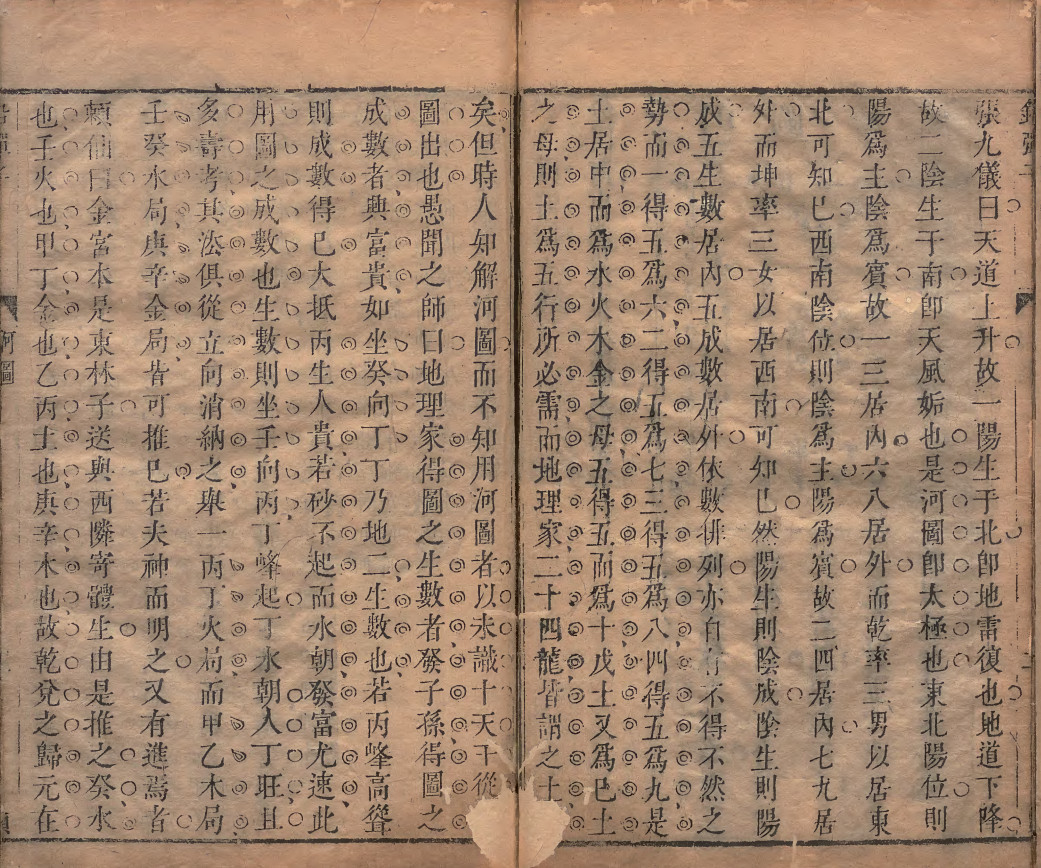 張九儀曰天道上升故一陽生于北卽地雷復也地道下降
故二陰生于南卽天風姤也是河圖卽太極也東北陽位則
陽爲主陰爲賓故一三居內六八居外而乾率三男以居東
北可知巳西南陰位則陰爲主陽爲賓故二四居內七九居
外而坤率三女以居西南可知巳然陽生則陰成陰生則陽
成五生數居內五成數居外依數排列亦自有不得不然之
勢而一得五爲六二得五爲七三得五爲八四得五爲九是
土居中而爲水火木金之母五得五而爲十戊土又爲巳土
之母則土爲五行所必需而地理家二十四龍皆謂之土
矣但時人知解河圖而不知用河圖者以未識十天干從
圖出也愚聞之師曰地理家得圖之生數者發子孫得圖之
成數者興富貴如坐癸向丁丁乃地二生數也若丙峰高聳
則成數得巳大抵丙生人貴若砂不起而水朝發富尤速此
用圖之成數也生數則坐壬向丙丁峰起丁水朝入丁旺且
多壽考其法俱從立向消納之舉一丙丁火局而甲乙木局
壬癸水局庚辛金局皆可推巳若夫神而明之又有進焉者
賴仙曰金宮本是東林子送與西隣寄體生由是推之癸水
也壬火也甲丁金也乙丙土也庚辛木也故乾兌之歸元在
河圖